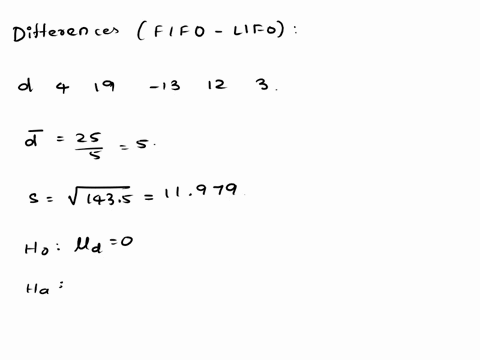 Differences (FIFO - LIFO):
d 4 19 -13 12 3.
d̅ = 25/5 = 5.
s = √143.5 = 11.979
H₀: μd = 0
Ha: